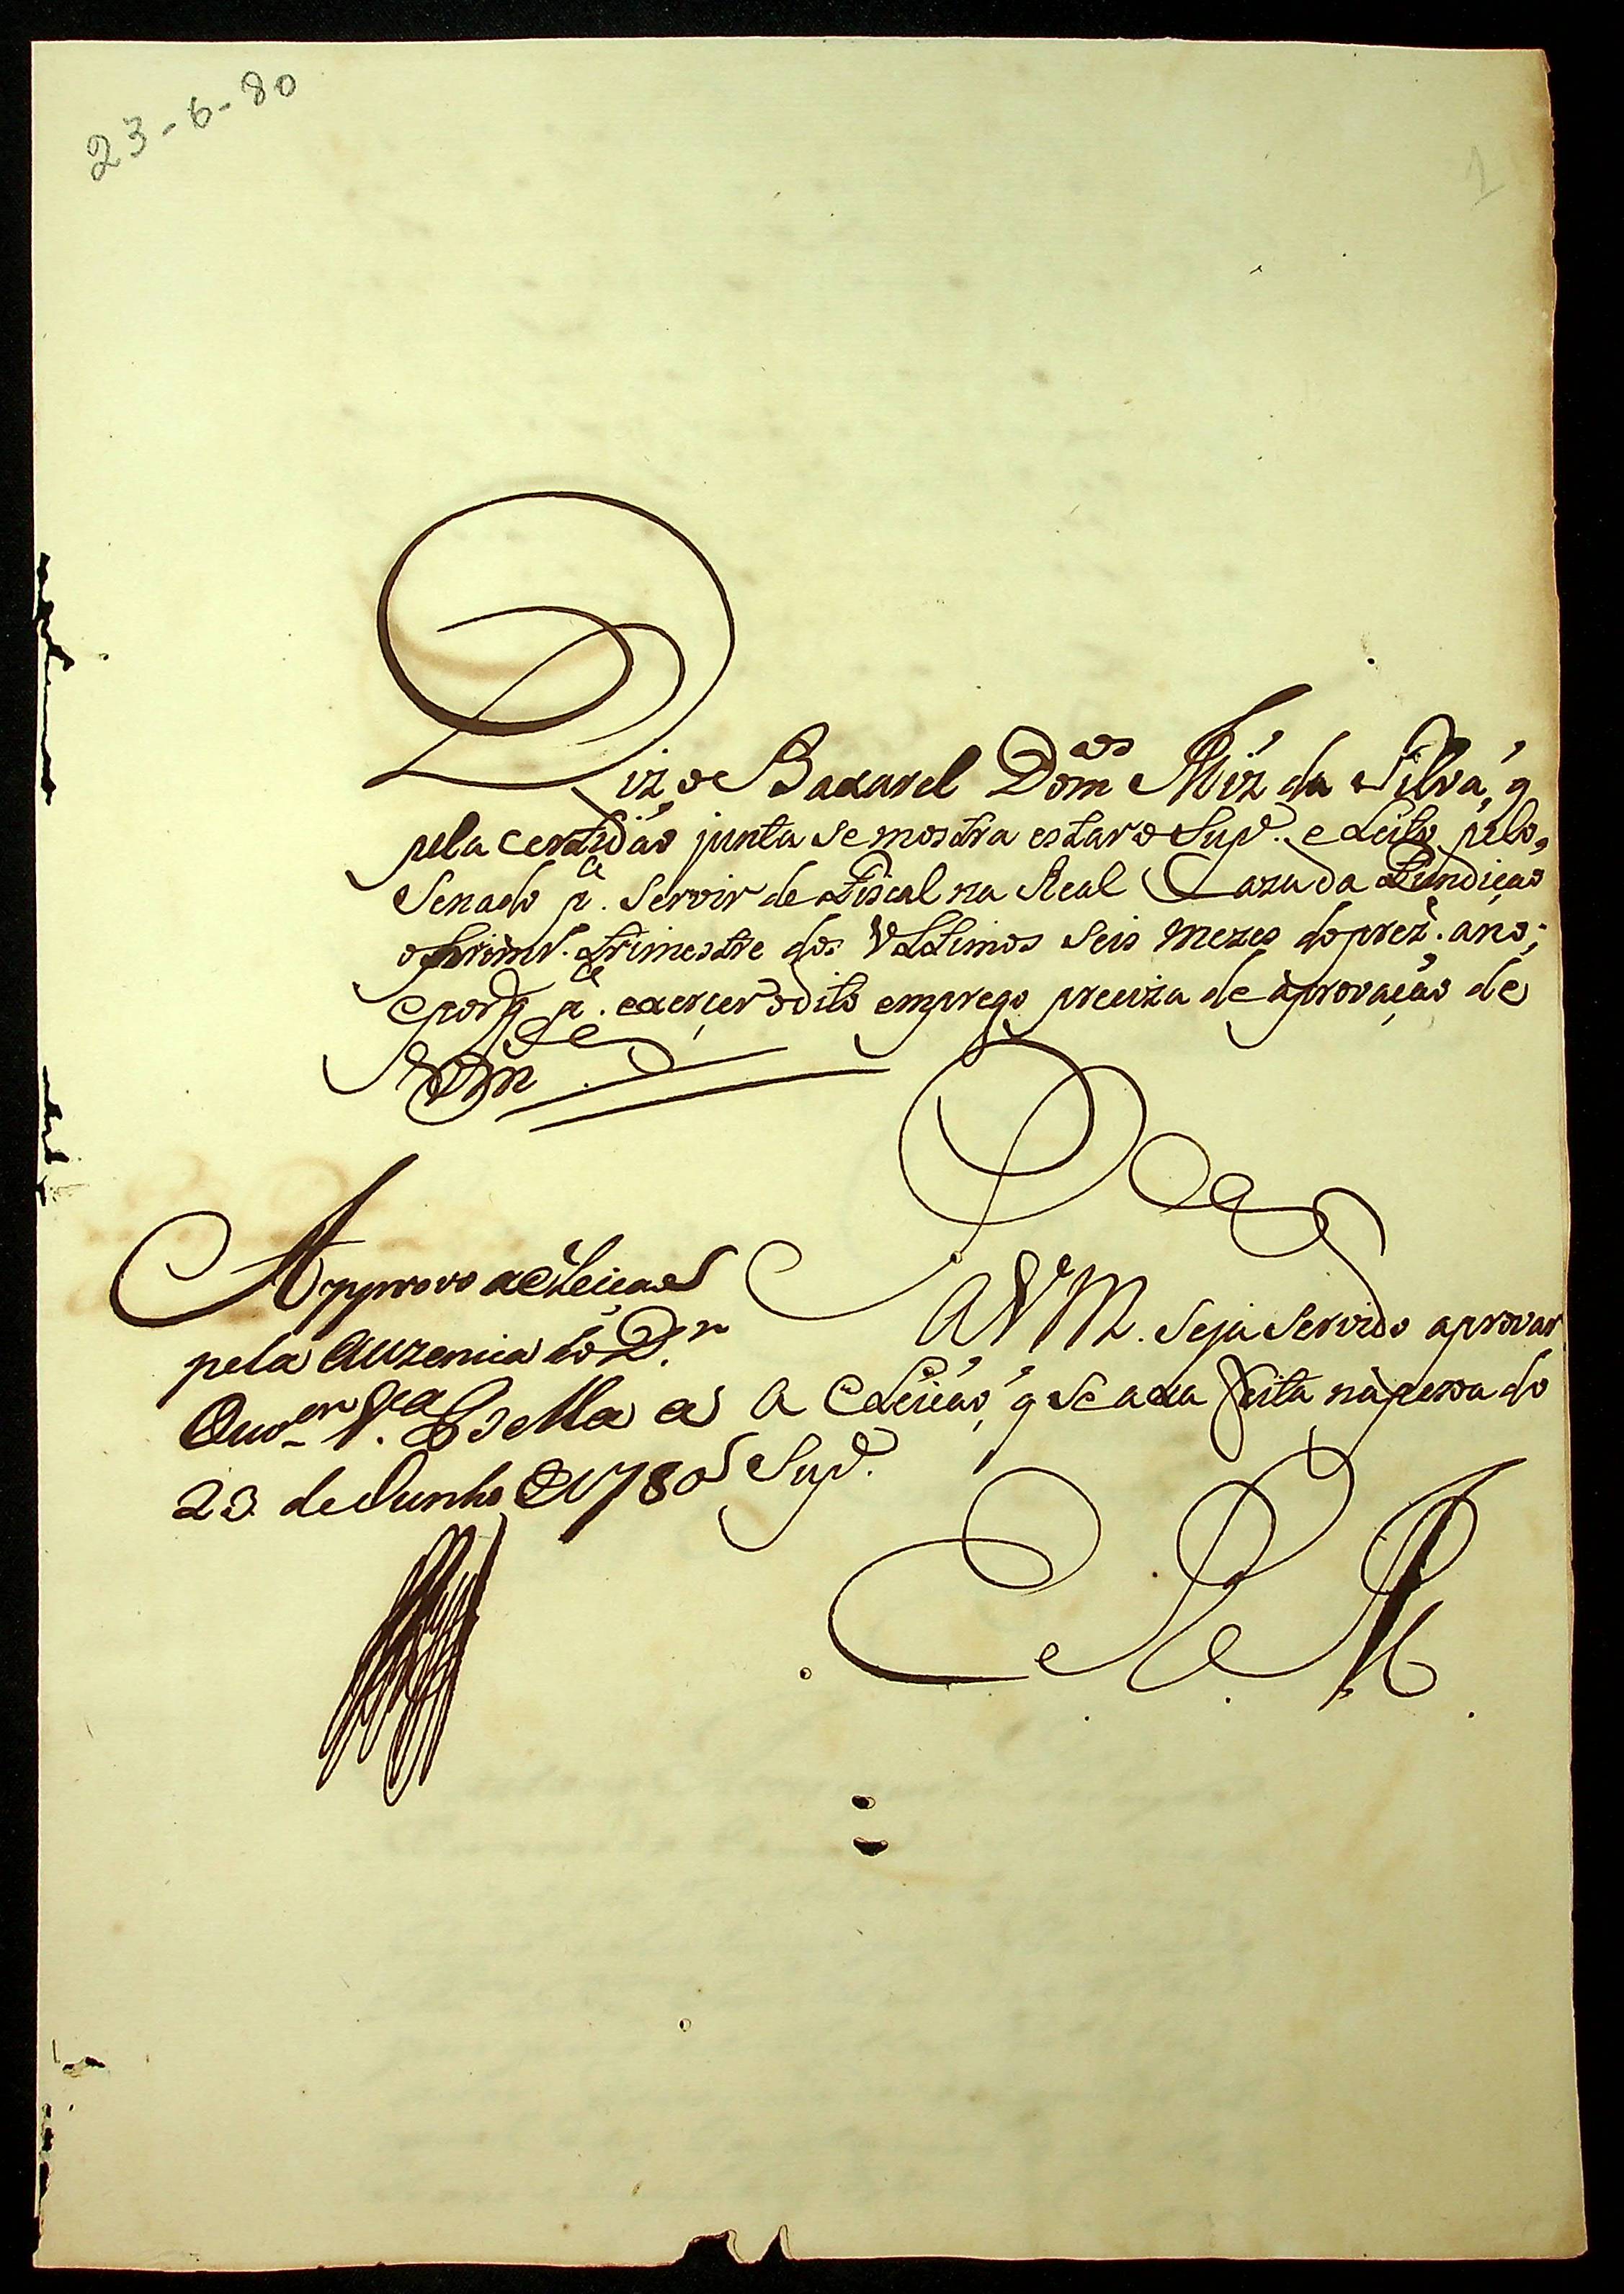 23-6-80
1
Diz o Baxarel Dom.os Miz da Silva, q
pela certidão junta se mostra estar o Sup.e eLeito pelo,
Senado p.a servir de Fiscal na Real Caza da Fundição
o primr.o trimestre dos Ulltimos seis mezes do prez.e ano;
e porq p.a exerçer o dito emprego preciza de aprovação de
VM.ce
P.
A VM. Seja Servido aprovar
a eLeição, q se axa feita na pessoa do
Sup.e
E R M
Approvo a eleicaõ
pela Auzencia do D.r
Ouv.or V.a Bella a
23 de Junho de 1780